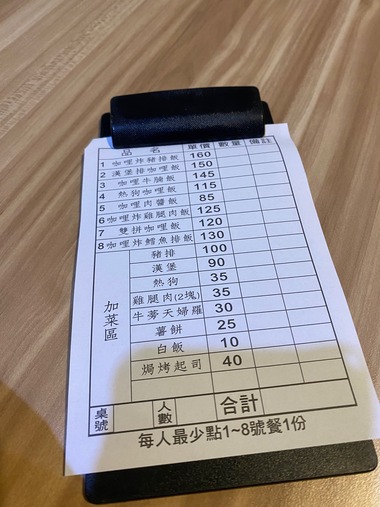 品 名 單價 數量 備註
1 咖哩炸豬排飯 160
2 漢堡排咖哩飯 150
3 咖哩牛腩飯 145
4 熱狗咖哩飯 115
5 咖哩肉醬飯 85
6 咖哩炸雞腿肉飯 125
7 雙拼咖哩飯 120
8 咖哩炸鱈魚排飯 130
加菜區
豬排 100
漢堡 90
熱狗 35
雞腿肉(2塊) 35
牛蒡天婦羅 30
薯餅 25
白飯 10
焗烤起司 40
桌號 人數 合計
每人最少點1~8號餐1份